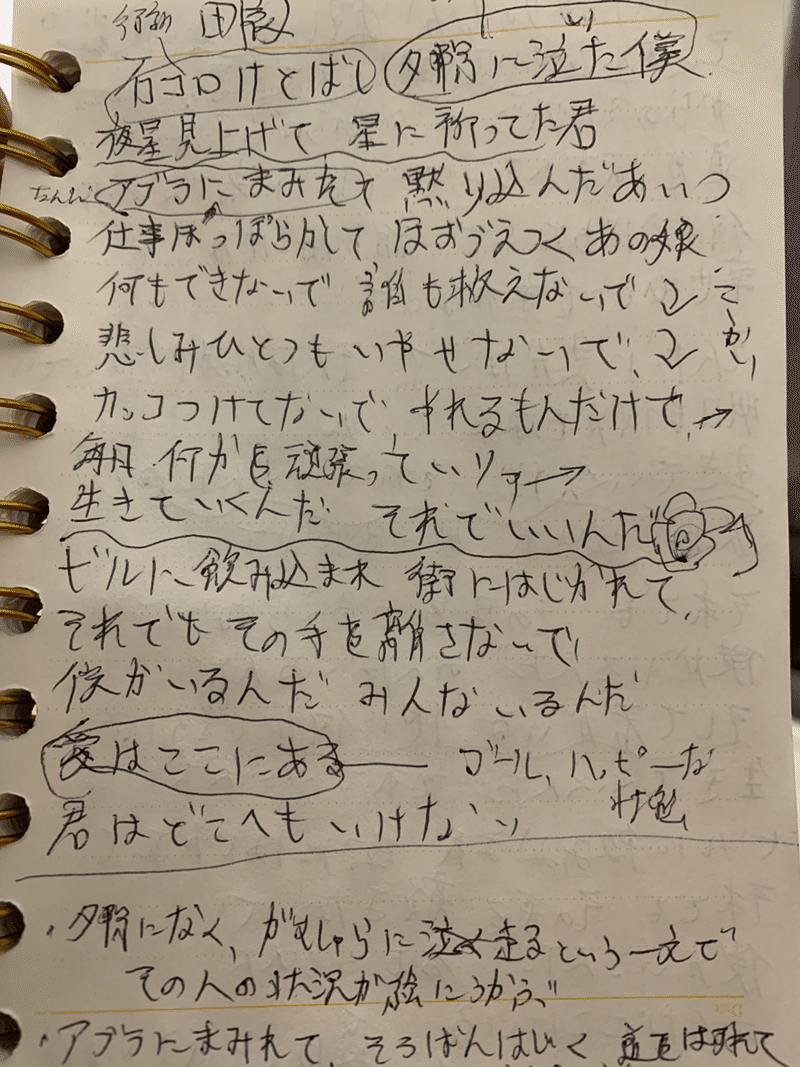 田舎
石コロけとばし 夕陽に泣いた僕
夜星見上げて 星に祈ってた君
アブラにまみれて 黙り込んだあいつ
仕事ほっぽらかして ほおづえつくあの娘
何もできないで 誰も救えないで
悲しみひとつもいやせないで、
カッコつけてないで、やれるもんだけで、→
毎日 何かを頑張っていりゃ→
生きていくんだ それでいいんだ
ビルに飲み込まれ 街にはじかれて
それでも その手を離さないで
僕がいるんだ みんないるんだ
愛はここにある ― ゴール、ハッピーな
状態
君はどこへもいけない
・夕陽になく、がむしゃらに走るという一文で
その人の状況が絵にうかぶ
・アブラにまみれて、そろばんはじく